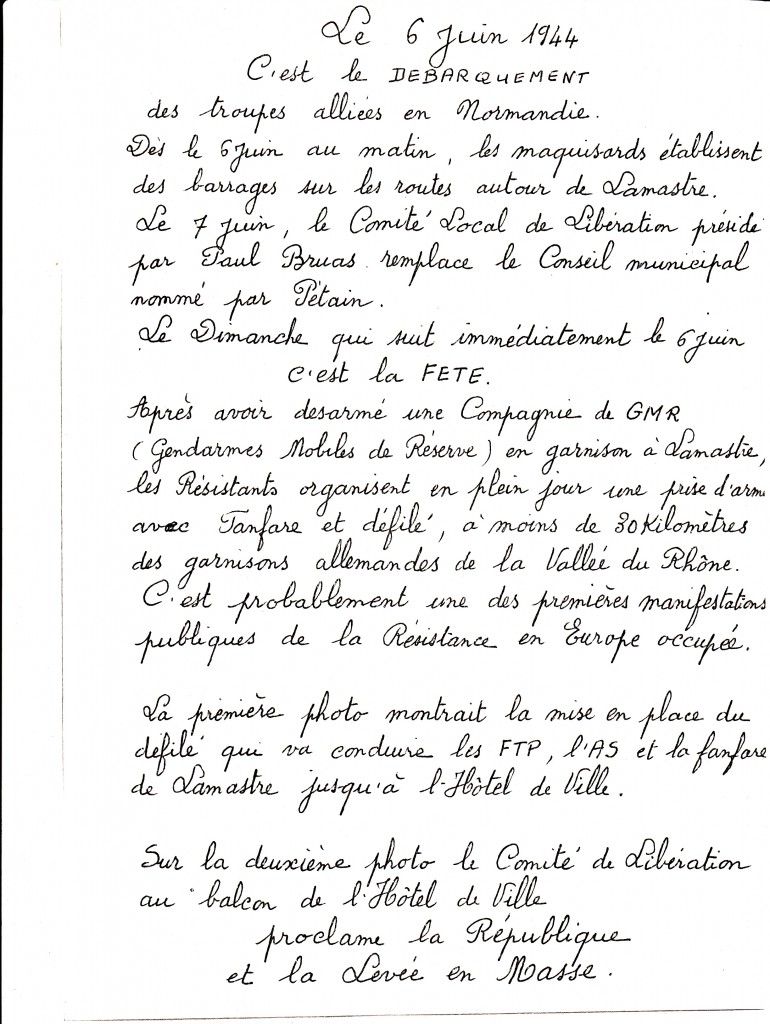 Le 6 Juin 1944
C'est le DEBARQUEMENT
des troupes alliées en Normandie.
Dès le 6 Juin au matin, les maquisards établissent
des barrages sur les routes autour de Lamastre.
Le 7 Juin, le Comité Local de Libération présidé
par Paul Bruas remplace le Conseil municipal
nommé par Pétain.
Le Dimanche qui suit immédiatement le 6 Juin
c'est la FETE.
Après avoir desarmé une Compagnie de GMR
(Gendarmes Mobiles de Réserve) en garnison à Lamastre,
les Résistants organisent en plein jour une prise d'arm
avec Fanfare et défilé, à moins de 30 Kilomètres
des garnisons allemandes de la Vallée du Rhône.
C'est probablement une des premières manifestations
publiques de la Résistance en Europe occupée.
La première photo montrait la mise en place du
défilé qui va conduire les FTP, l'AS et la fanfare
de Lamastre jusqu'à l'Hôtel de Ville.
Sur la deuxième photo le Comité de Libération
au balcon de l'Hôtel de Ville
proclame la République
et la Levée en Masse.